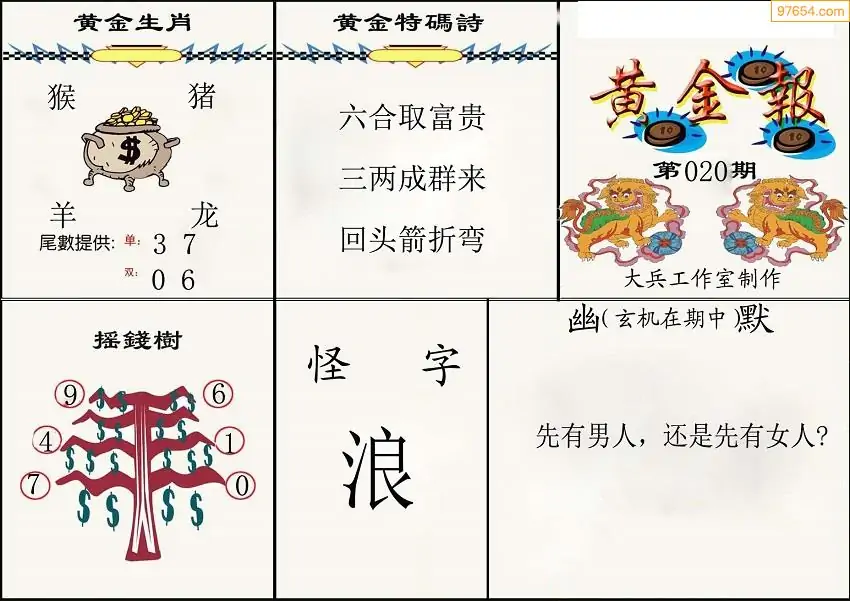 97654.com
黄金生肖
猴 猪
$
羊 龙
尾數提供: 单: 3 7
双: 0 6
黄金特碼詩
六合取富贵
三两成群来
回头箭折弯
黄金報
10
10
10
第020期
大兵工作室制作
摇錢樹
9 6
$ $ $ $
$ $ $ $
4 1
$ $ $ $
7 0
$ $ $ $
怪 字
浪
幽(玄机在期中)默
先有男人，还是先有女人?